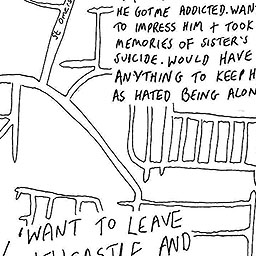 HE GOT ME ADDICTED. WAN
TO IMPRESS HIM + TOOK
MEMORIES OF SISTER'S
SUICIDE. WOULD HAVE
ANYTHING TO KEEP H
AS HATED BEING ALON
'WANT TO LEAVE
AND